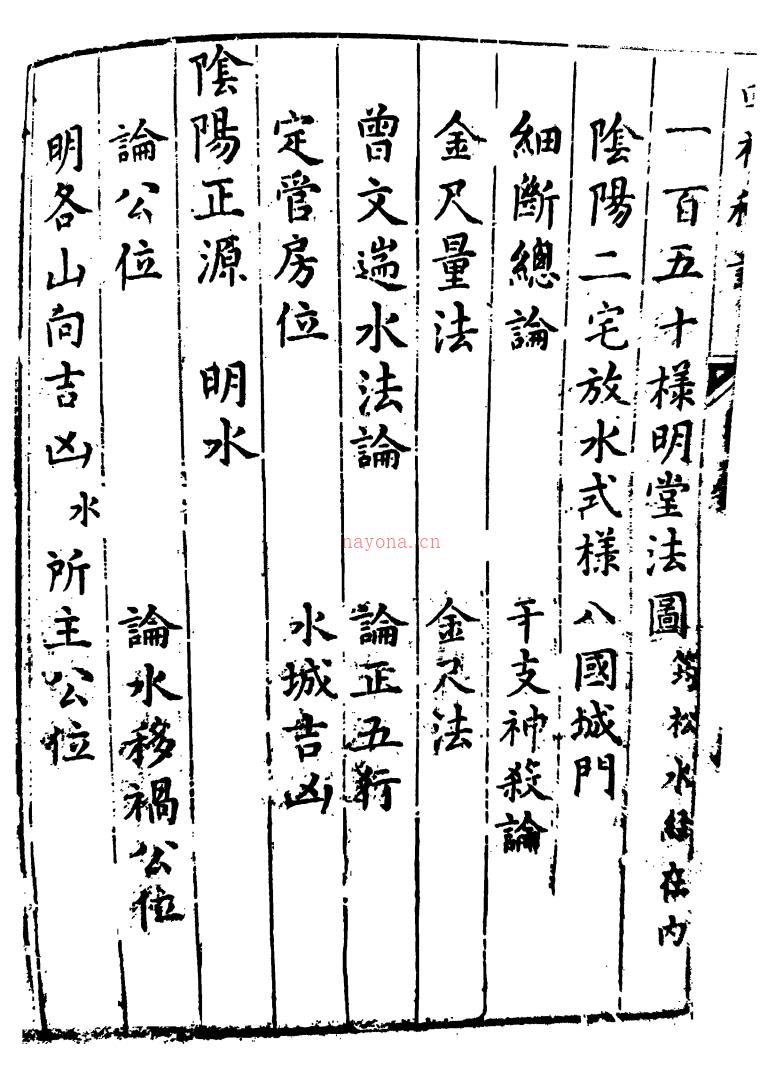 一百五十樣明堂法圖 筠松水經在內
陰陽二宅放水式樣 八國城門
細斷總論 干支神殺論
金尺量法 金尺法
曾文遄水法論 論正五行
定管房位 水城吉凶
陰陽正源 明水
論公位 論水移禍公位
明各山向吉凶水所主公位
nayona.cn